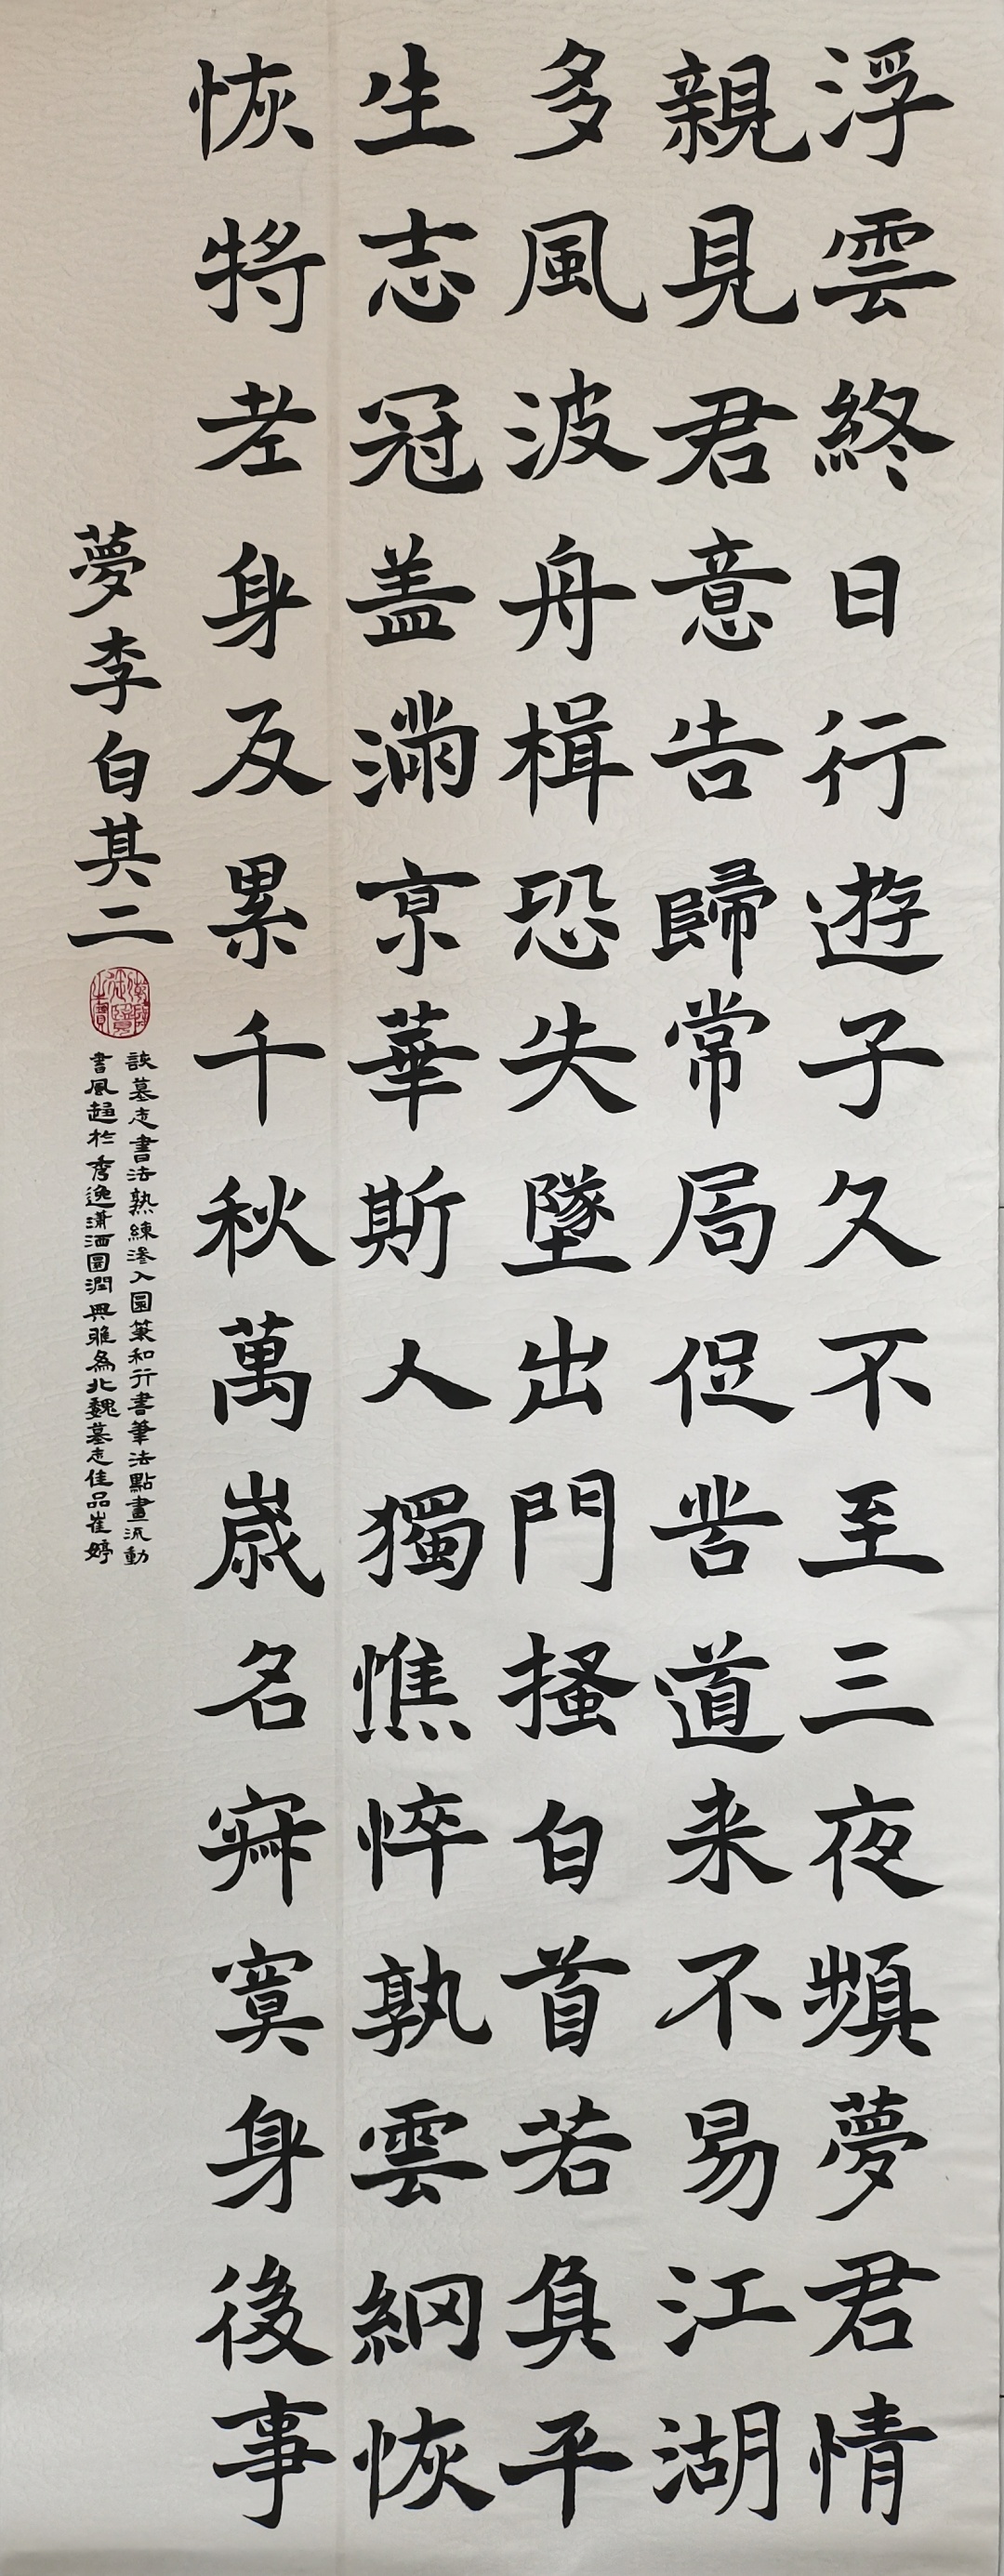 浮雲終日行遊子久不至三夜頻夢君情
親見君意告歸常局促苦道来不易江湖
多風波舟楫恐失墜出門搔白首若負平
生志冠盖滿京華斯人獨憔悴孰雲網恢
恢將老身反累千秋萬歲名寂寞身後事
夢李白其二
該墓志書法熟練滲入圓筆和行書筆法點畫流動
書風趨於秀逸瀟洒圓潤典雅為北魏墓志佳品崔婷